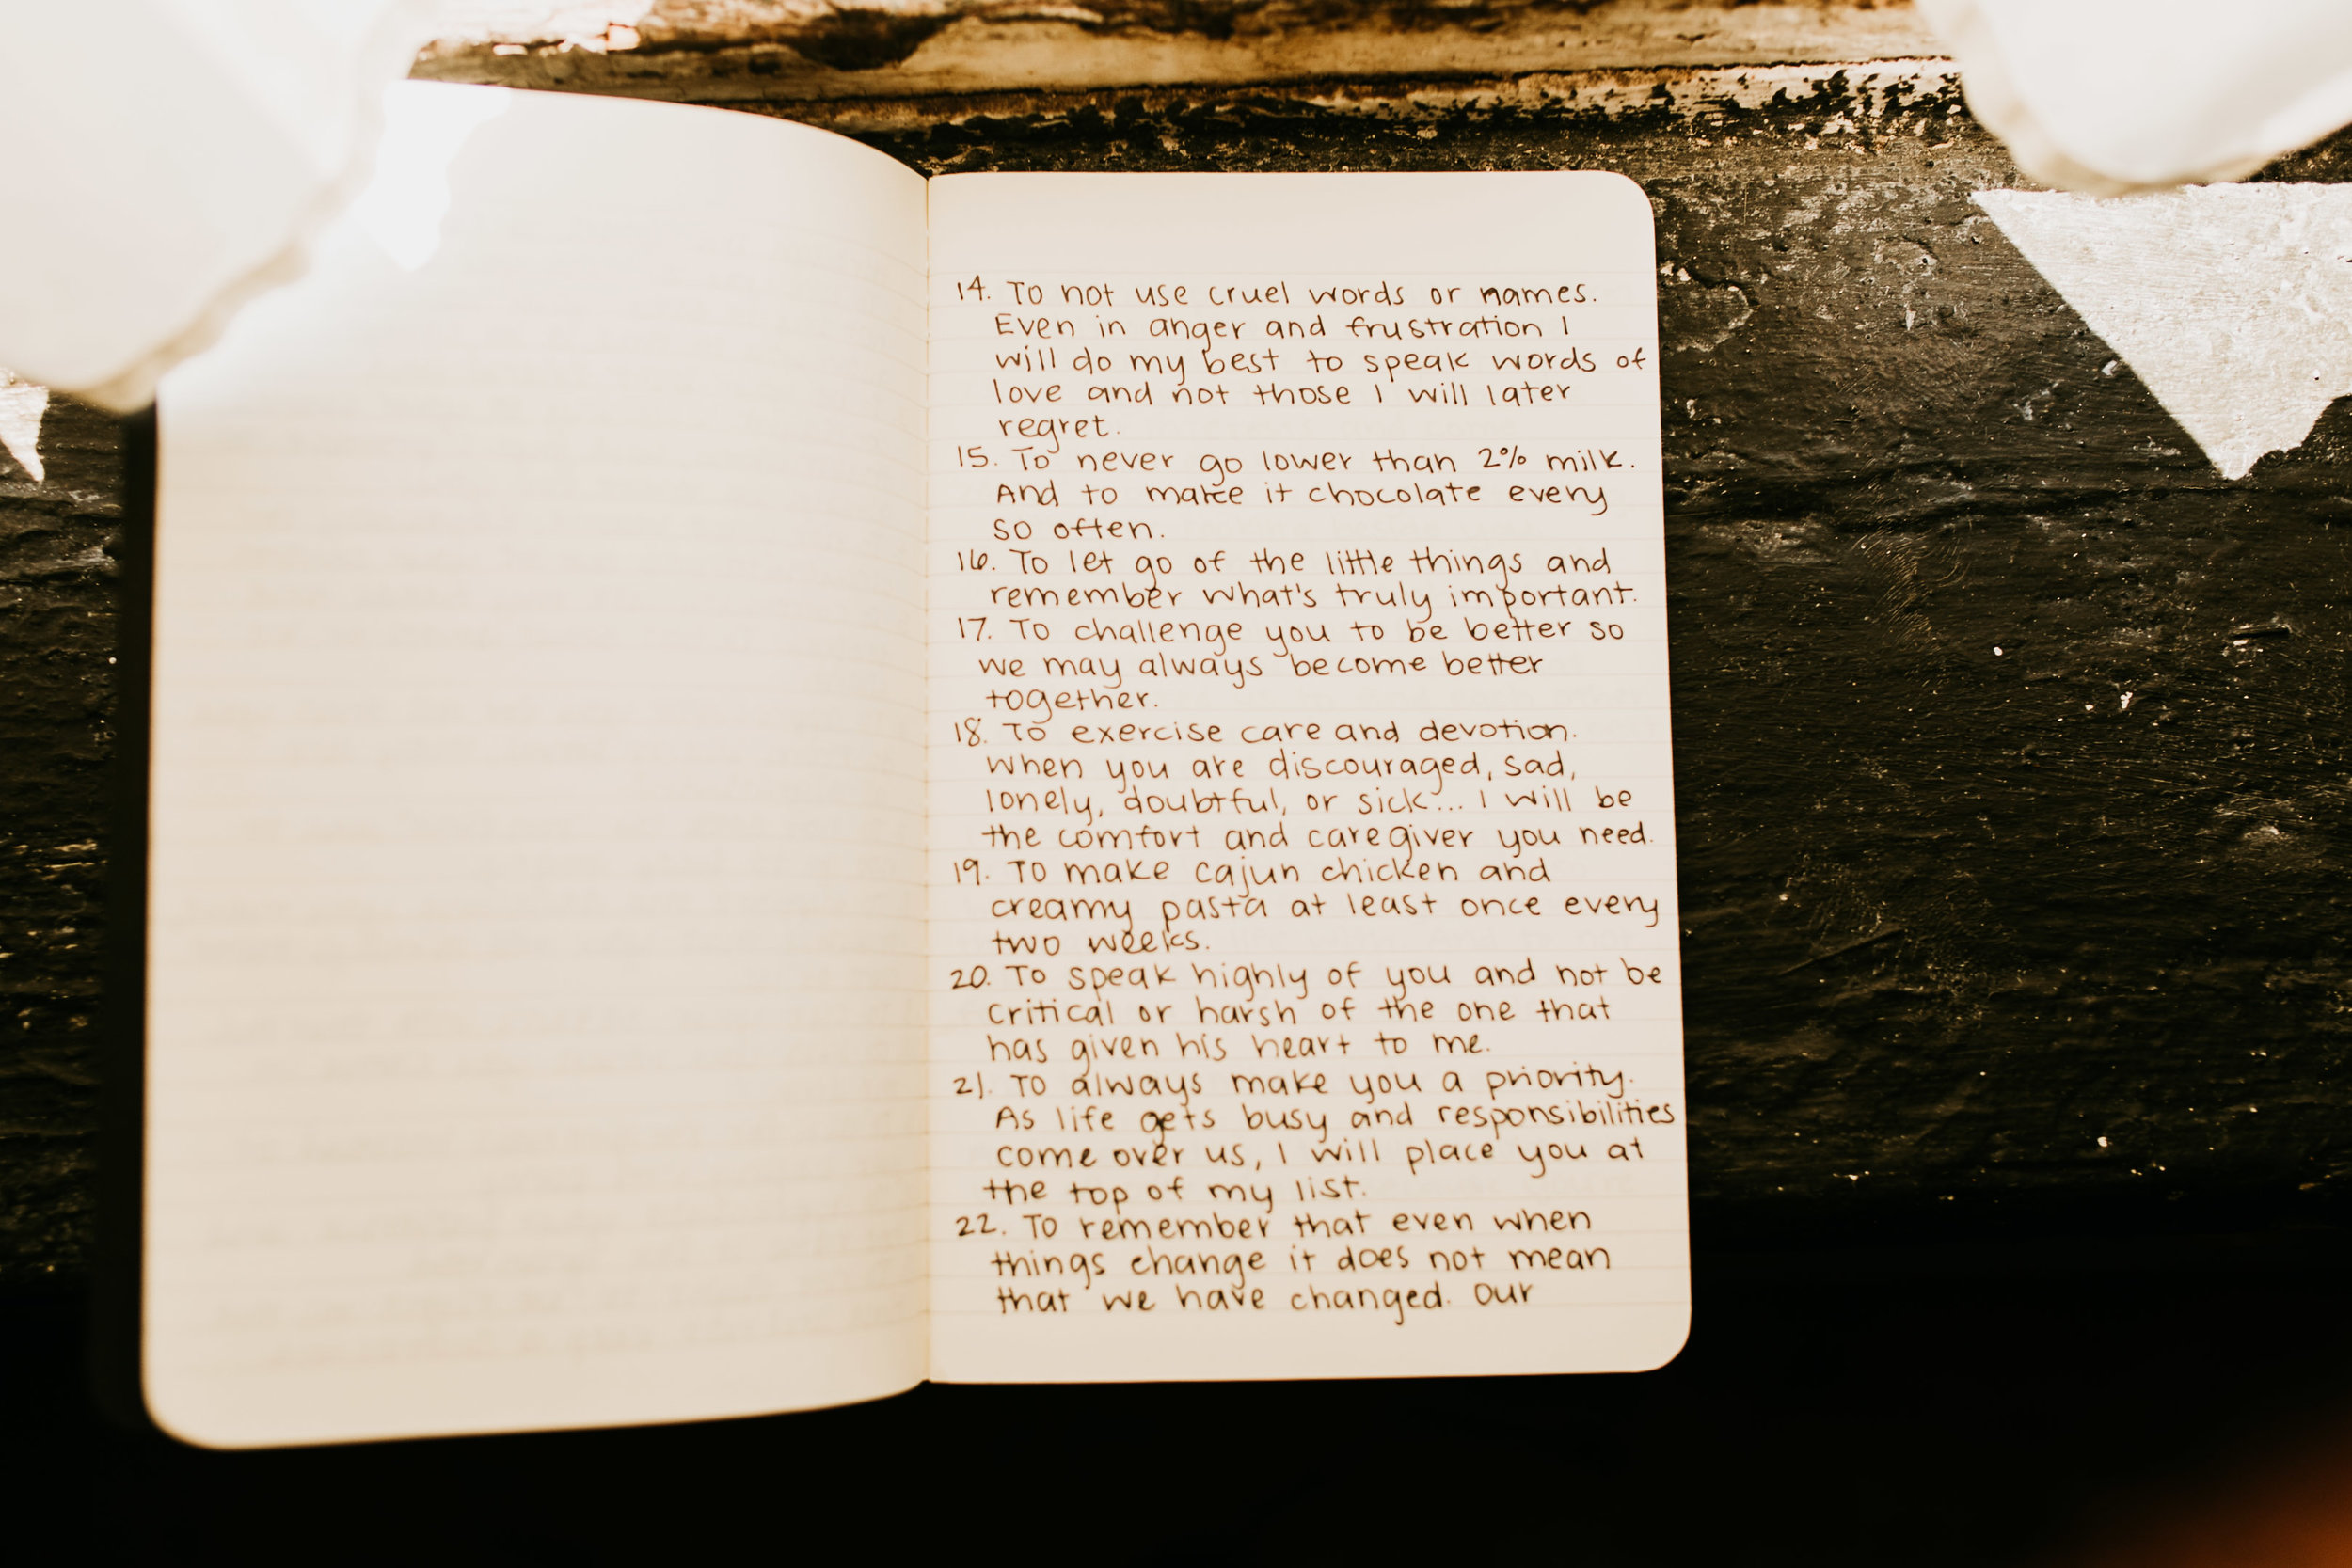 14. To not use cruel words or names.
Even in anger and frustration I
will do my best to speak words of
love and not those I will later
regret.
15. To never go lower than 2% milk.
And to make it chocolate every
so often.
16. To let go of the little things and
remember what's truly important.
17. To challenge you to be better so
we may always become better
together.
18. To exercise care and devotion.
When you are discouraged, sad,
lonely, doubtful, or sick... I will be
the comfort and caregiver you need.
19. To make cajun chicken and
creamy pasta at least once every
two weeks.
20. To speak highly of you and not be
critical or harsh of the one that
has given his heart to me.
21. To always make you a priority.
As life gets busy and responsibilities
come over us, I will place you at
the top of my list.
22. To remember that even when
things change it does not mean
that we have changed. Our